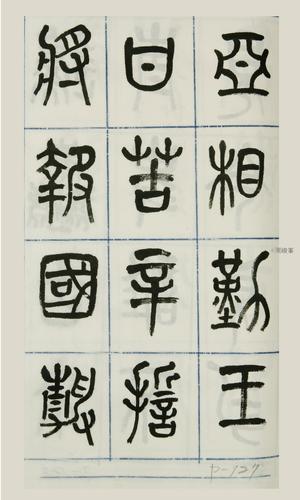 亞相勤王
甘苦辛誓
將報國靜
P-127